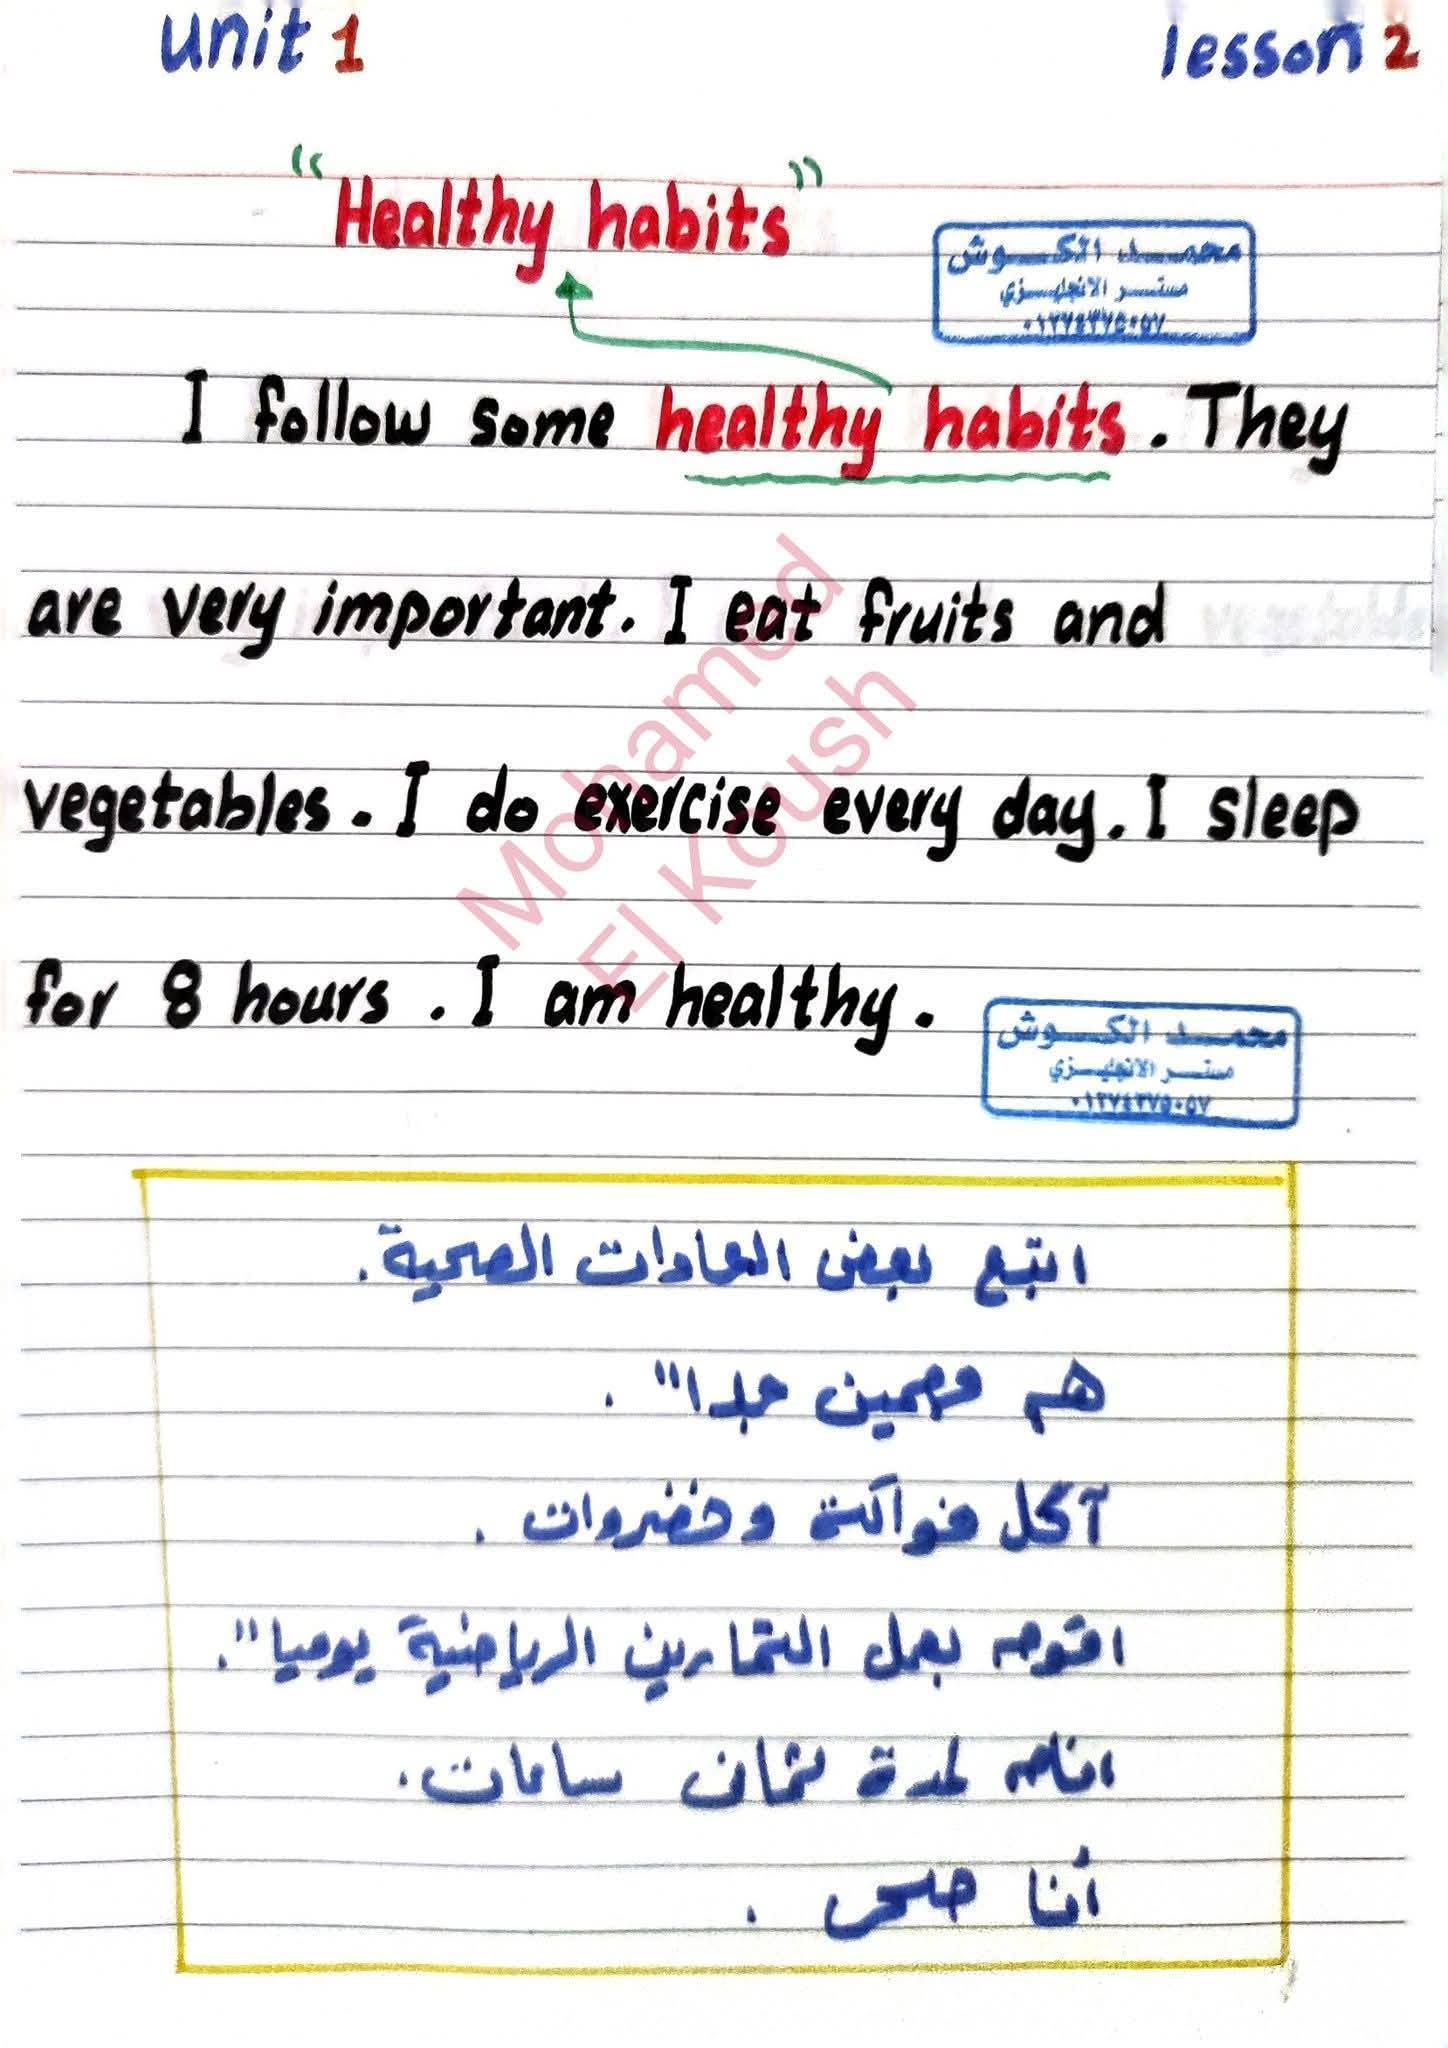 unit 1 lesson 2
"Healthy habits"
محمد الكوش
مستر الانجليزي
٠١٢٧٤٣٧٥٠٥٧
I follow some healthy habits. They
are very important. I eat fruits and
vegetables. I do exercise every day. I sleep
for 8 hours. I am healthy.
محمد الكوش
مستر الانجليزي
٠١٢٧٤٣٧٥٠٥٧
Mohamed
El Koush
اتبع بعض العادات الصحية.
هم مهمين جدا".
آكل فواكة وخضروات.
اقوم بعمل التمارين الرياضية يوميا".
انام لمدة ثمان ساعات.
أنا صحى.